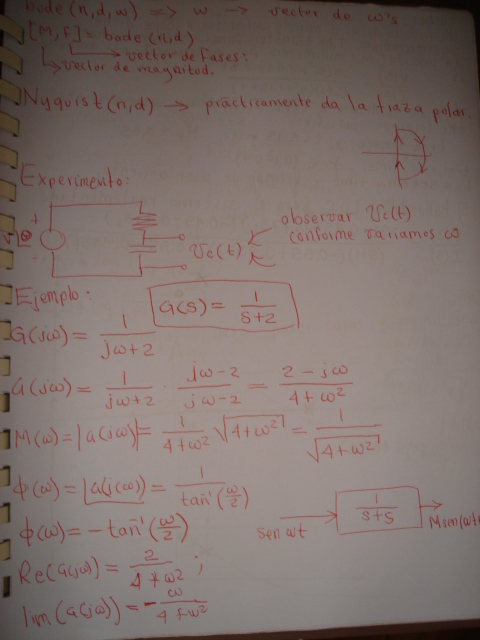 bode(n,d,w) => w → vector de w's
[M,F]= bode(n,d)
→ vector de fases:
→ vector de magnitud.
Nyquist(n,d) → prácticamente da la traza polar.
Experimento:
+
Vc(t)
observar Vc(t)
conforme variamos ω
-
Ejemplo:
G(s) = 1/(s+2)
G(jω) = 1/(jω+2)
G(jω) = 1/(jω+2) · (jω-2)/(jω-2) = (2-jω)/(4+ω²)
M(ω) = |G(jω)| = 1/(4+ω²) √(4+ω²) = 1/√(4+ω²)
φ(ω) = ∠G(jω) = 1/tan⁻¹(ω/2)
φ(ω) = -tan⁻¹(ω/2)
sen ωt
1/(s+s)
Msen(ωt+
Re(G(jω)) = 2/(4+ω²) ;
Im(G(jω)) = -ω/(4+ω²)